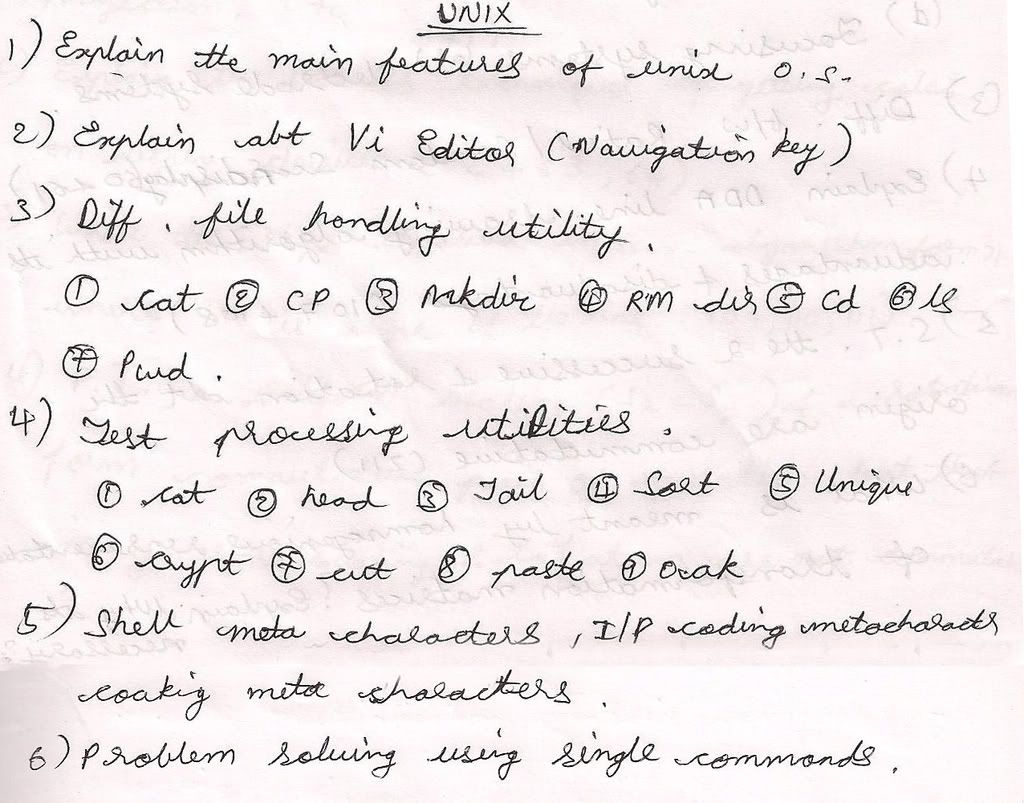 UNIX
1) Explain the main features of unix o.s.
2) Explain abt Vi Editor (Navigation key)
3) Diff. file handling utility.
① cat ② CP ③ Mkdir ④ RM dir ⑤ Cd ⑥ ls
⑦ Pwd.
4) Test processing utilities.
① cat ② head ③ Tail ④ Sort ⑤ Unique
⑥ crypt ⑦ cut ⑧ paste ⑨
5) Shell meta characters, I/P coding metacharacts
meta characters.
6) Problem solving using single commands.